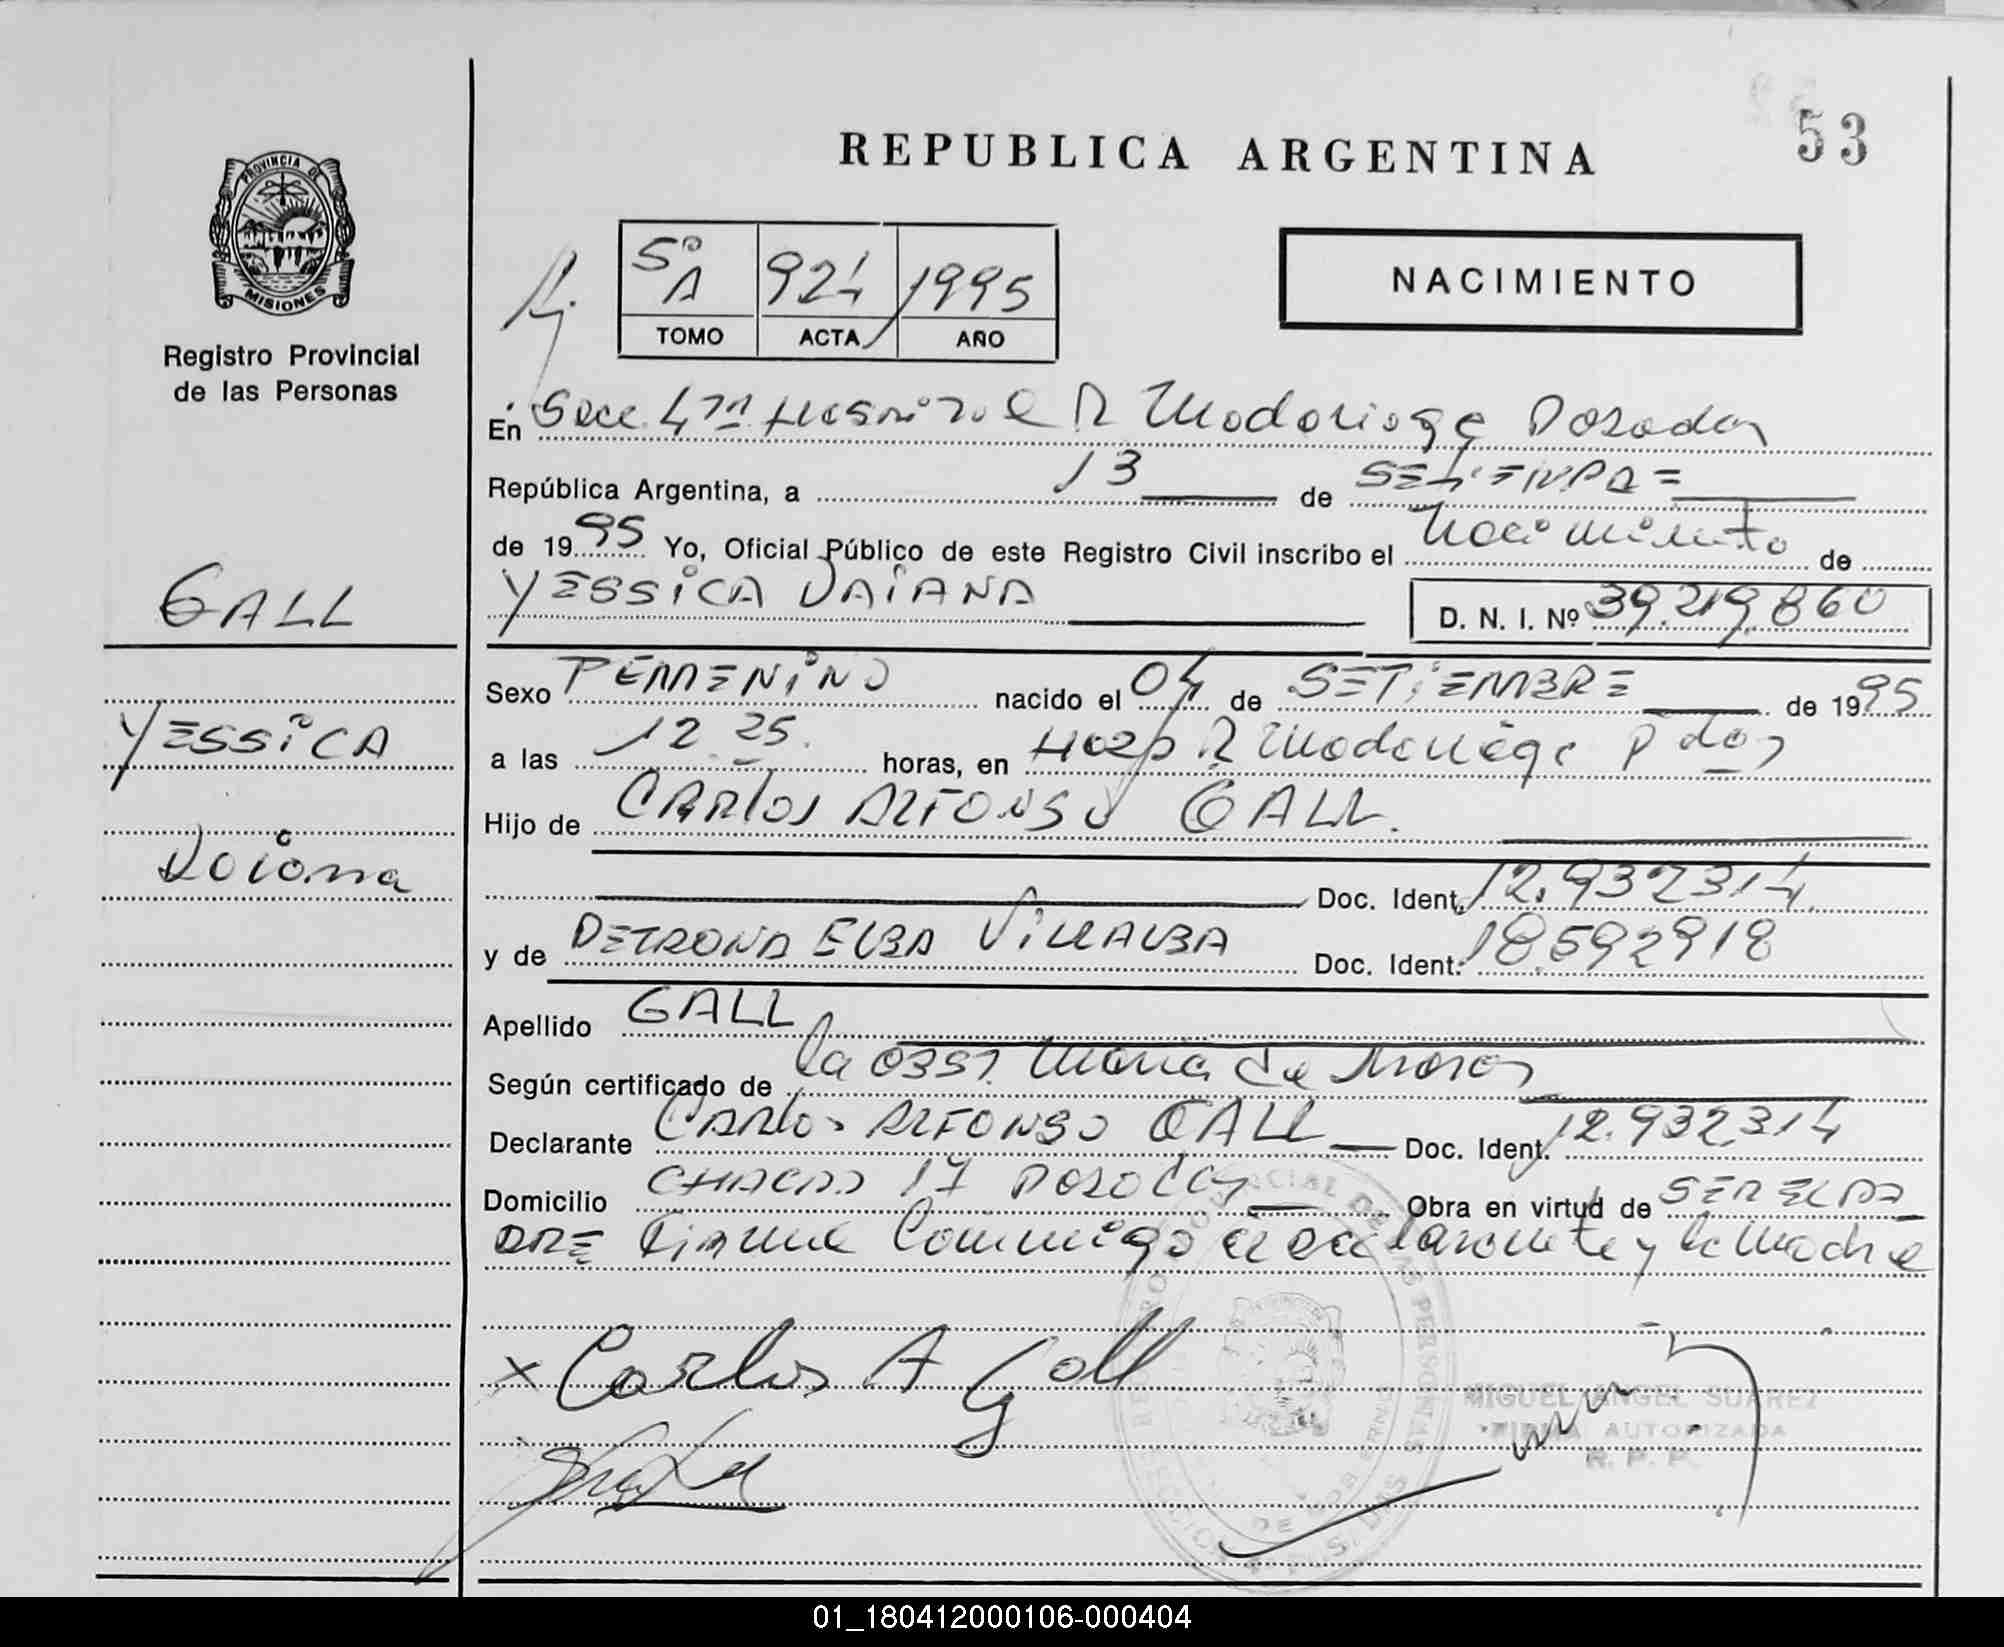 53
REPUBLICA ARGENTINA
PROVINCIA DE
MISIONES
Registro Provincial
de las Personas
5º A 924 1995
TOMO ACTA AÑO
NACIMIENTO
En Secc. 4ta Hospital R Madariaga Posadas
República Argentina, a 13 de SETIEMBRE
de 1995 Yo, Oficial Público de este Registro Civil inscribo el Nacimiento de
YESSICA DAIANA D. N. I. Nº 39.219.860
GALL
YESSICA
Daiana
Sexo FEMENINO nacido el 04 de SETIEMBRE de 1995
a las 12.25. horas, en Hosp R Madariaga Pdas
Hijo de CARLOS ALFONSO GALL.
Doc. Ident. 12.932314
y de PETRONA ELBA VILLALBA Doc. Ident. 18.592918
Apellido GALL
Según certificado de la Obst. Maria de
Declarante CARLOS ALFONSO GALL Doc. Ident. 12.932314
Domicilio CHACRA 17 Posadas Obra en virtud de SER EL PA
DRE Firman Conmigo el declarante y la Madre
x Carlos A Gall
MIGUEL ANGEL SUAREZ
FIRMA AUTORIZADA
R. P. P.
01_180412000106-000404